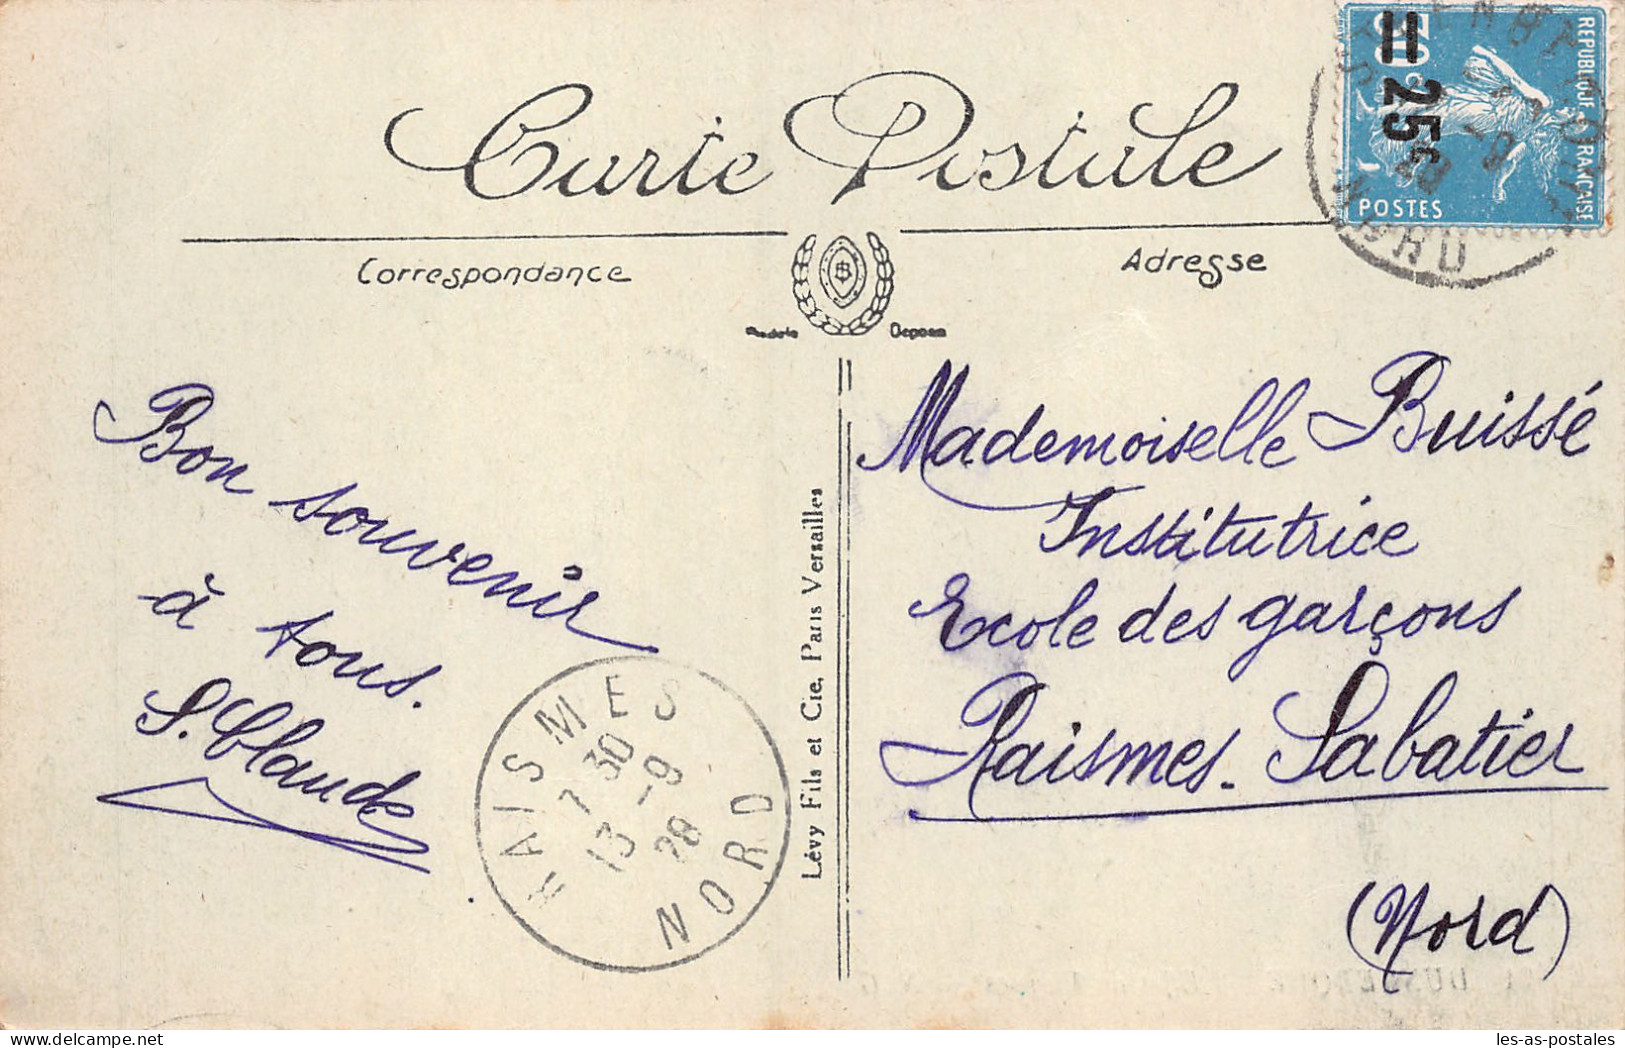 Carte Postale
Correspondance
Adresse
Bon souvenir
à tous.
S. Claude
Mademoiselle Buissé
Institutrice
Ecole des garçons
Raismes. Sabatier
(Nord)
Lévy Fils et Cie, Paris Versailles
RAISMES
7 30
13 -9
28
NORD
REPUBLIQUE FRANÇAISE
POSTES
= 25c
NORD
les-as-postales